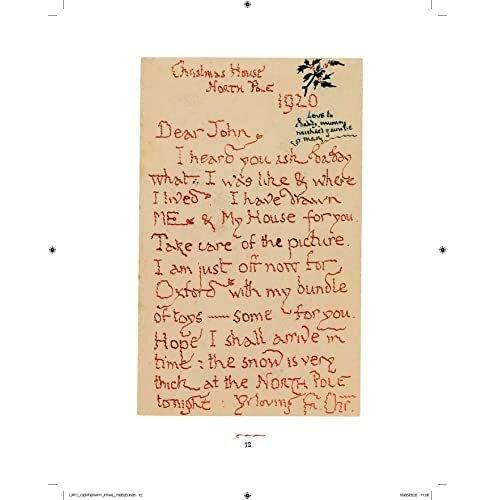 Christmas House
North Pole
1920
Love to
daddy, mummy
michael & auntie
mary
Dear John
I heard you ask daddy
what I was like & where
I lived. I have drawn
ME & My House for you.
Take care of the picture.
I am just off now for
Oxford with my bundle
of toys — some for you.
Hope I shall arrive in
time : the snow is very
thick at the NORTH POLE
tonight : Yr loving Fr. Chr.
12